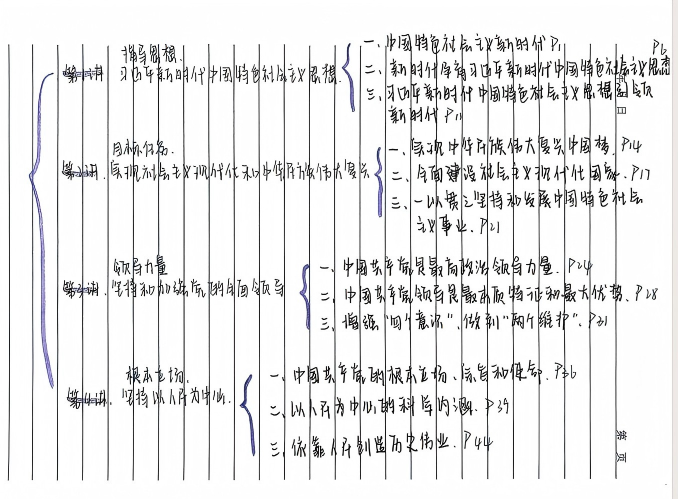 指导思想.
第一讲 习近平新时代中国特色社会主义思想.
一、中国特色社会主义新时代 P1
二、新时代孕育习近平新时代中国特色社会主义思想 P6
三、习近平新时代中国特色社会主义思想引领
新时代 P11
日
目标任务.
第2讲. 实现社会主义现代化和中华民族伟大复兴
一、实现中华民族伟大复兴中国梦. P14
二、全面建设社会主义现代化国家. P17
三、一以贯之坚持和发展中国特色社会
主义事业. P21
领导力量
第3讲. 坚持和加强党的全面领导
一、中国共产党是最高政治领导力量. P24
二、中国共产党领导是最本质特征和最大优势. P28
三、增强"四个意识", 做到"两个维护". P31
根本立场.
第4讲. 坚持以人民为中心.
一、中国共产党的根本立场、宗旨和使命. P36
二、以人民为中心的科学内涵. P39
三、依靠人民创造历史伟业. P44
第 页